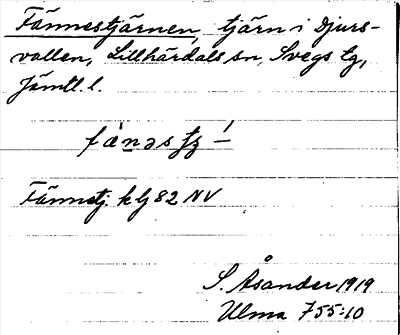 Fännestjärnen, tjärn i Djurs-
vallen, Lillhärdals sn, Svegs tg,
Jämtl. l.
Fännetj. klj 82 NV
S. Åsander 1919
Ulma 755:10